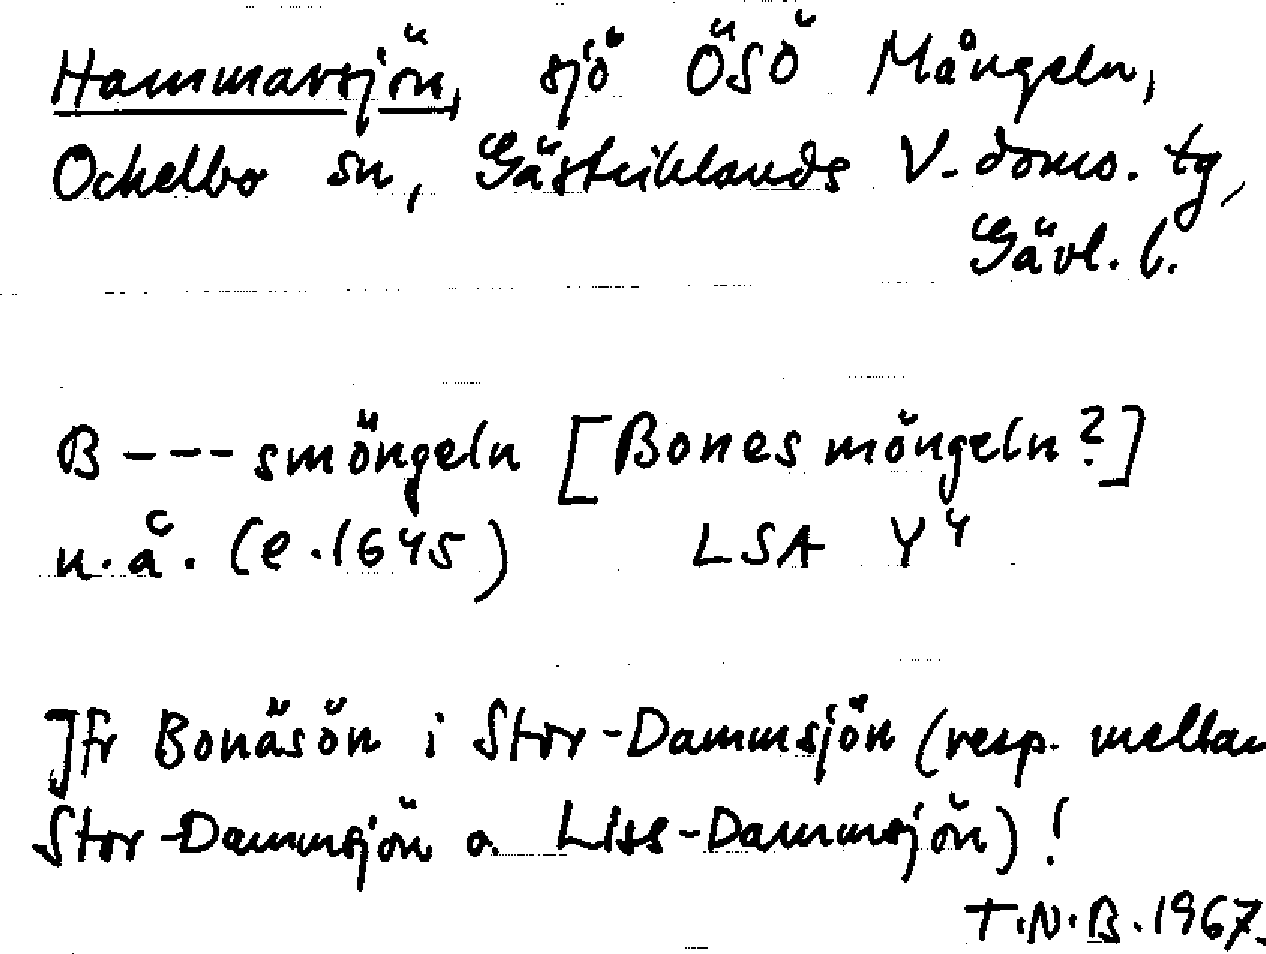 Hammarsjön, sjö ÖSÖ Mångeln,
Ockelbo sn, Gästriklands V. doms. tg,
Gävl. l.
B---smöngeln [Bonesmöngeln?]
n.ä. (e. 1645) LSA Y4
Jfr Bonäsön i Stor-Dammsjön (resp. mellan
Stor-Dammsjön o. Liss-Dammsjön)!
T.N.B. 1967.